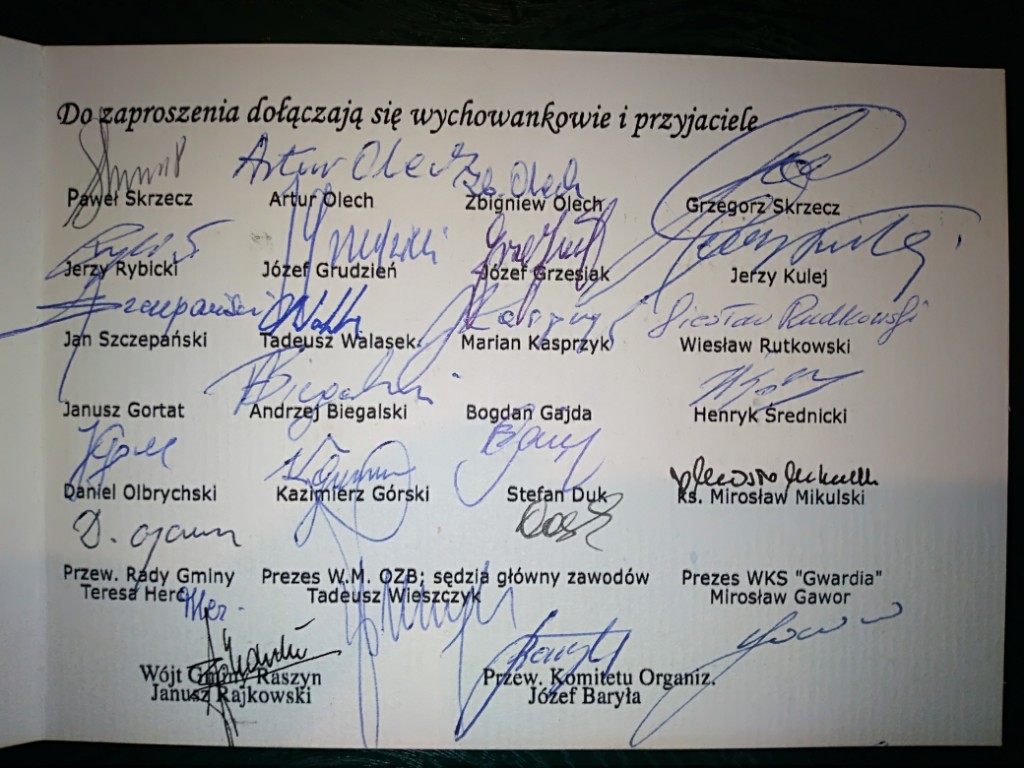 Do zaproszenia dołączają się wychowankowie i przyjaciele
Artur Olech Zb. Olech
Paweł Skrzecz Artur Olech Zbigniew Olech Grzegorz Skrzecz
Jerzy Rybicki Józef Grudzień Józef Grzesiak Jerzy Kulej
Szczepański Kasprzyk Wiesław Rudkowski
Jan Szczepański Tadeusz Walasek Marian Kasprzyk Wiesław Rutkowski
Biegalski
Janusz Gortat Andrzej Biegalski Bogdan Gajda Henryk Średnicki
Daniel Olbrychski Kazimierz Górski Stefan Duk ks. Mirosław Mikulski
Przew. Rady Gminy Prezes W.M. OZB; sędzia główny zawodów Prezes WKS "Gwardia"
Teresa Herc Tadeusz Wieszczyk Mirosław Gawor
Wójt Gminy Raszyn Przew. Komitetu Organiz.
Janusz Rajkowski Józef Baryła